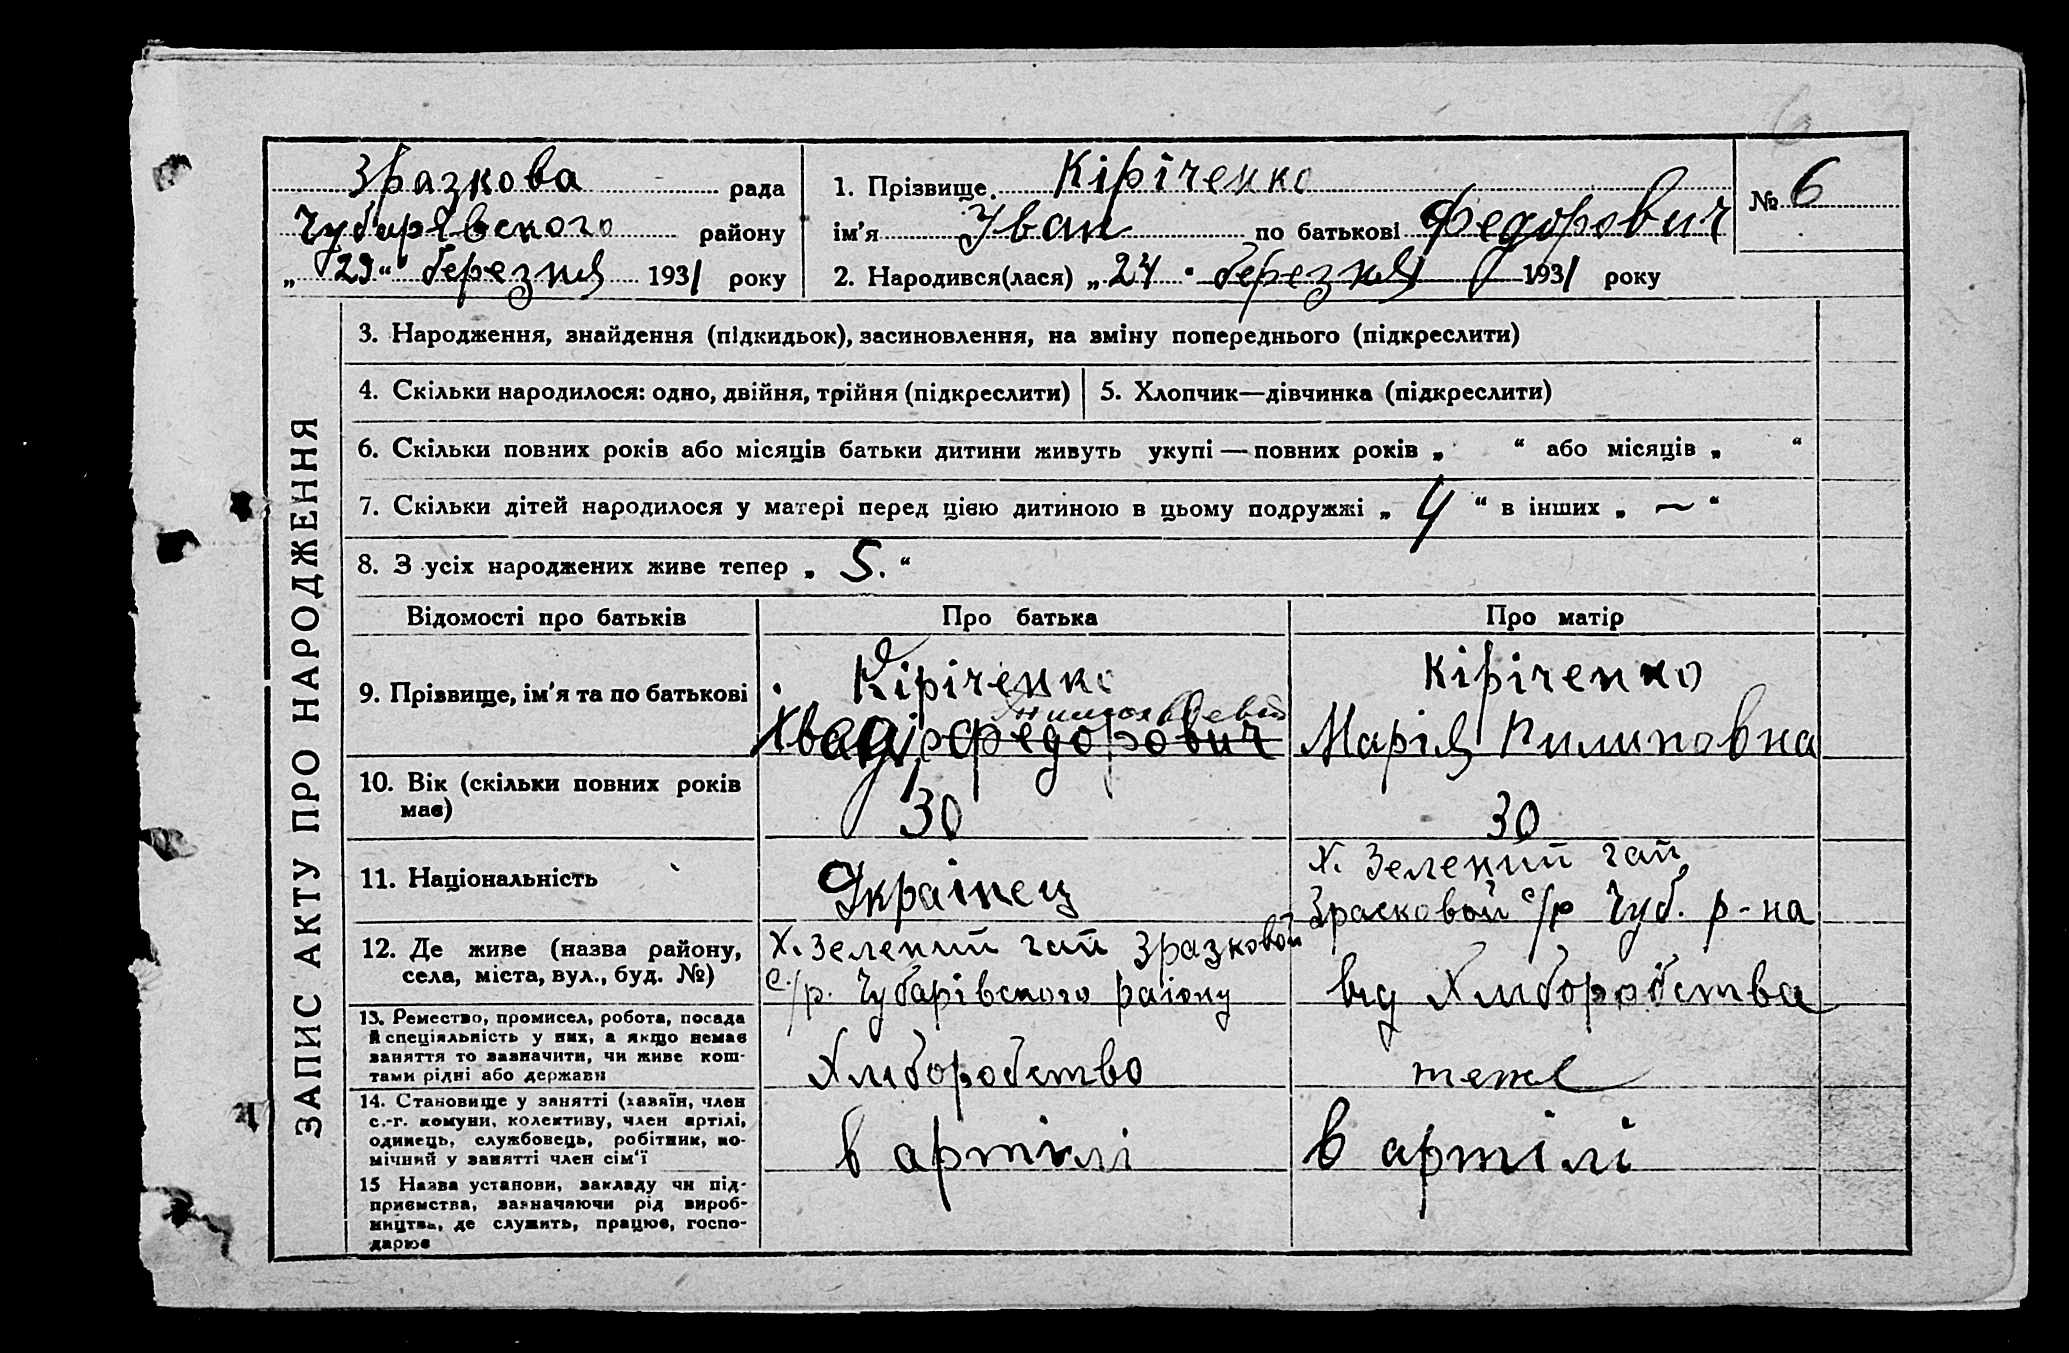 6
Зразкова рада
Чубарівського району
„29“ березня 1931 року
1. Прізвище Кіріченко
ім'я Іван по батькові Федорович
2. Народився(лася) „24“ березня 1931 року
№ 6
ЗАПИС АКТУ ПРО НАРОДЖЕННЯ
3. Народження, знайдення (підкидьок), засиновлення, на зміну попереднього (підкреслити)
4. Скільки народилося: одно, двійня, трійня (підкреслити)
5. Хлопчик—дівчинка (підкреслити)
6. Скільки повних років або місяців батьки дитини живуть укупі — повних років „ “ або місяців „ “
7. Скільки дітей народилося у матері перед цією дитиною в цьому подружжі „ 4 “ в інших „ — “
8. З усіх народжених живе тепер „ 5. “
Відомості про батьків
Про батька
Про матір
9. Прізвище, ім'я та по батькові
Кіріченко
Хведір Федорович
Кіріченко
Марія Пилиповна
10. Вік (скільки повних років
має)
30
30
11. Національність
Українец
Х. Зелений гай
Зрасковой с/р Чуб. р-на
12. Де живе (назва району,
села, міста, вул., буд. №)
Х. Зелений гай Зразковой
с./р. Чубарівского району
від Хлиборобства
13. Ремество, промисел, робота, посада
й спеціяльність у них, а якщо немає
заняття то зазначити, чи живе кош-
тами рідні або держави
Хлиборобство
теже
14. Становище у занятті (хазяїн, член
с.-г. комуни, колективу, член артілі,
одинець, службовець, робітник, по-
мічний у занятті член сім'ї
в артілі
в артілі
15 Назва установи, закладу чи під-
приємства, зазначаючи рід вироб-
ництва, де служить, працює, госпо-
дарює